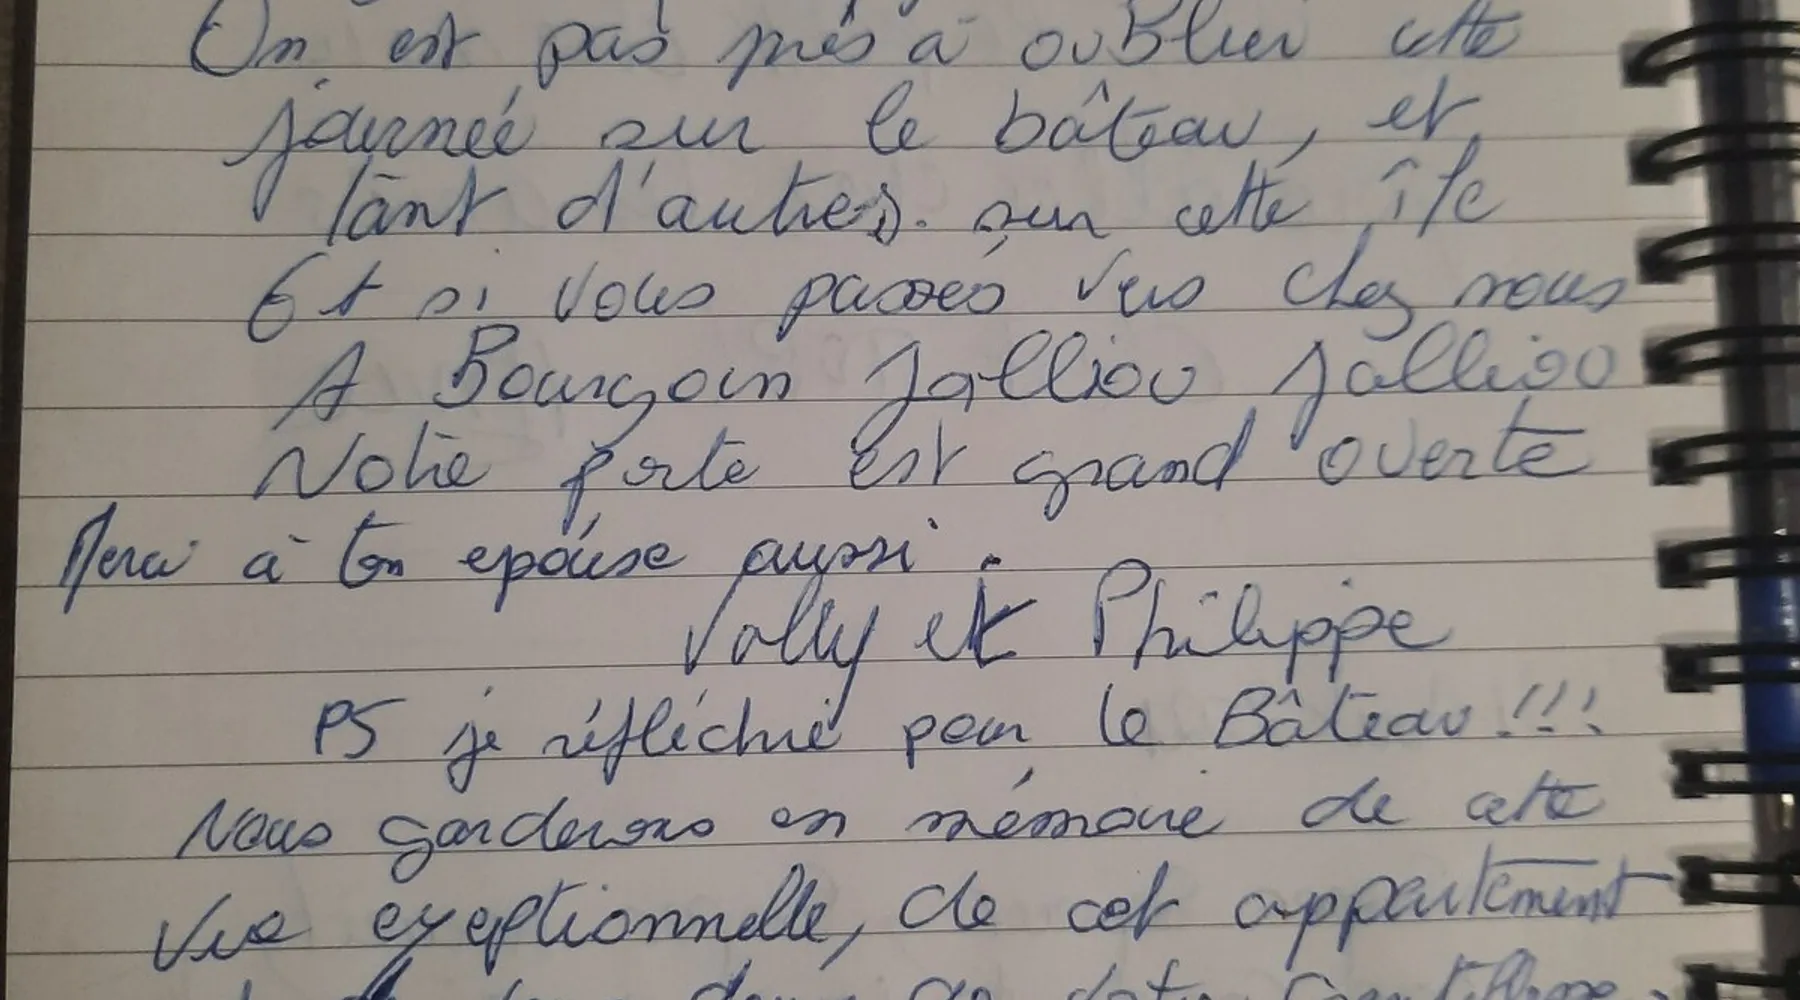 On est pas près à ouBlier cette
journée sur le bâteau, et
tant d'autres. sur cette île
Et si vous passés vers chez nous
A Bourgoin Jallieu Jallieu
Notre porte est grand ouverte
Merci à ton epouse aussi.
et Philippe
PS je réfléchie pour le Bâteau!!!
Nous garderons en mémoire de cette
vue exeptionnelle, de cet appartement
de